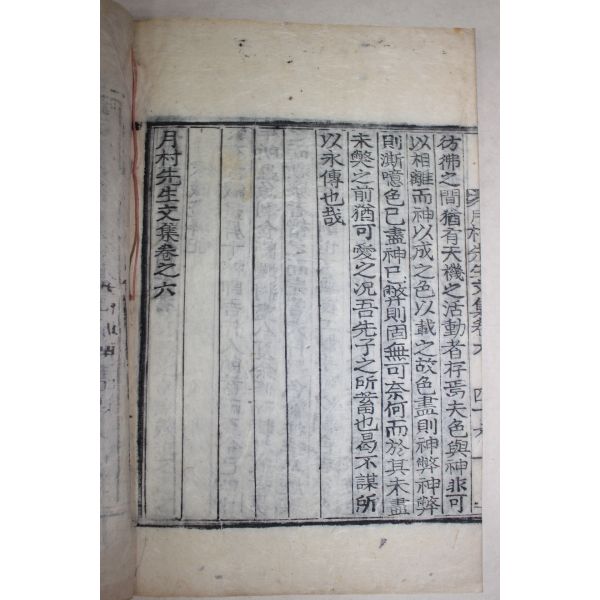 月村先生文集卷六
彷彿之間猶有天機之活動者存焉夫色與神非可
以相離而神以成之色以載之故色盡則神弊神弊
則澌噫色已盡神已弊則固無可奈何而於其未盡
未獘之前猶可愛之况吾先子之所蓄也曷不謀所
以永傳也哉
月村先生文集卷之六